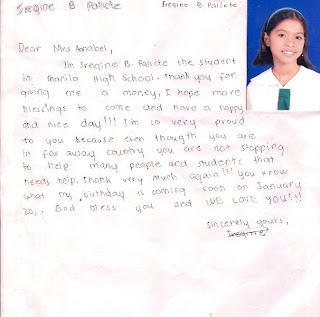 Sreqine B. Pallete
Sreqine B. Pallete
Dear Mrs. Annabel,
I'm Sreqine B. Pallete the student
in Manila High School. Thank you for
giving me a money, I hope more
blessings to come and have a happy
and nice day!!! I'm so very proud
to you because even thougth you are
in far away country you are not stopping
to help many people and students that
needs help. Thank very much again!!! you know
what my birthday is coming soon on January
20,. God bless you and WE LOVE YOU!!!
sincerely yours,